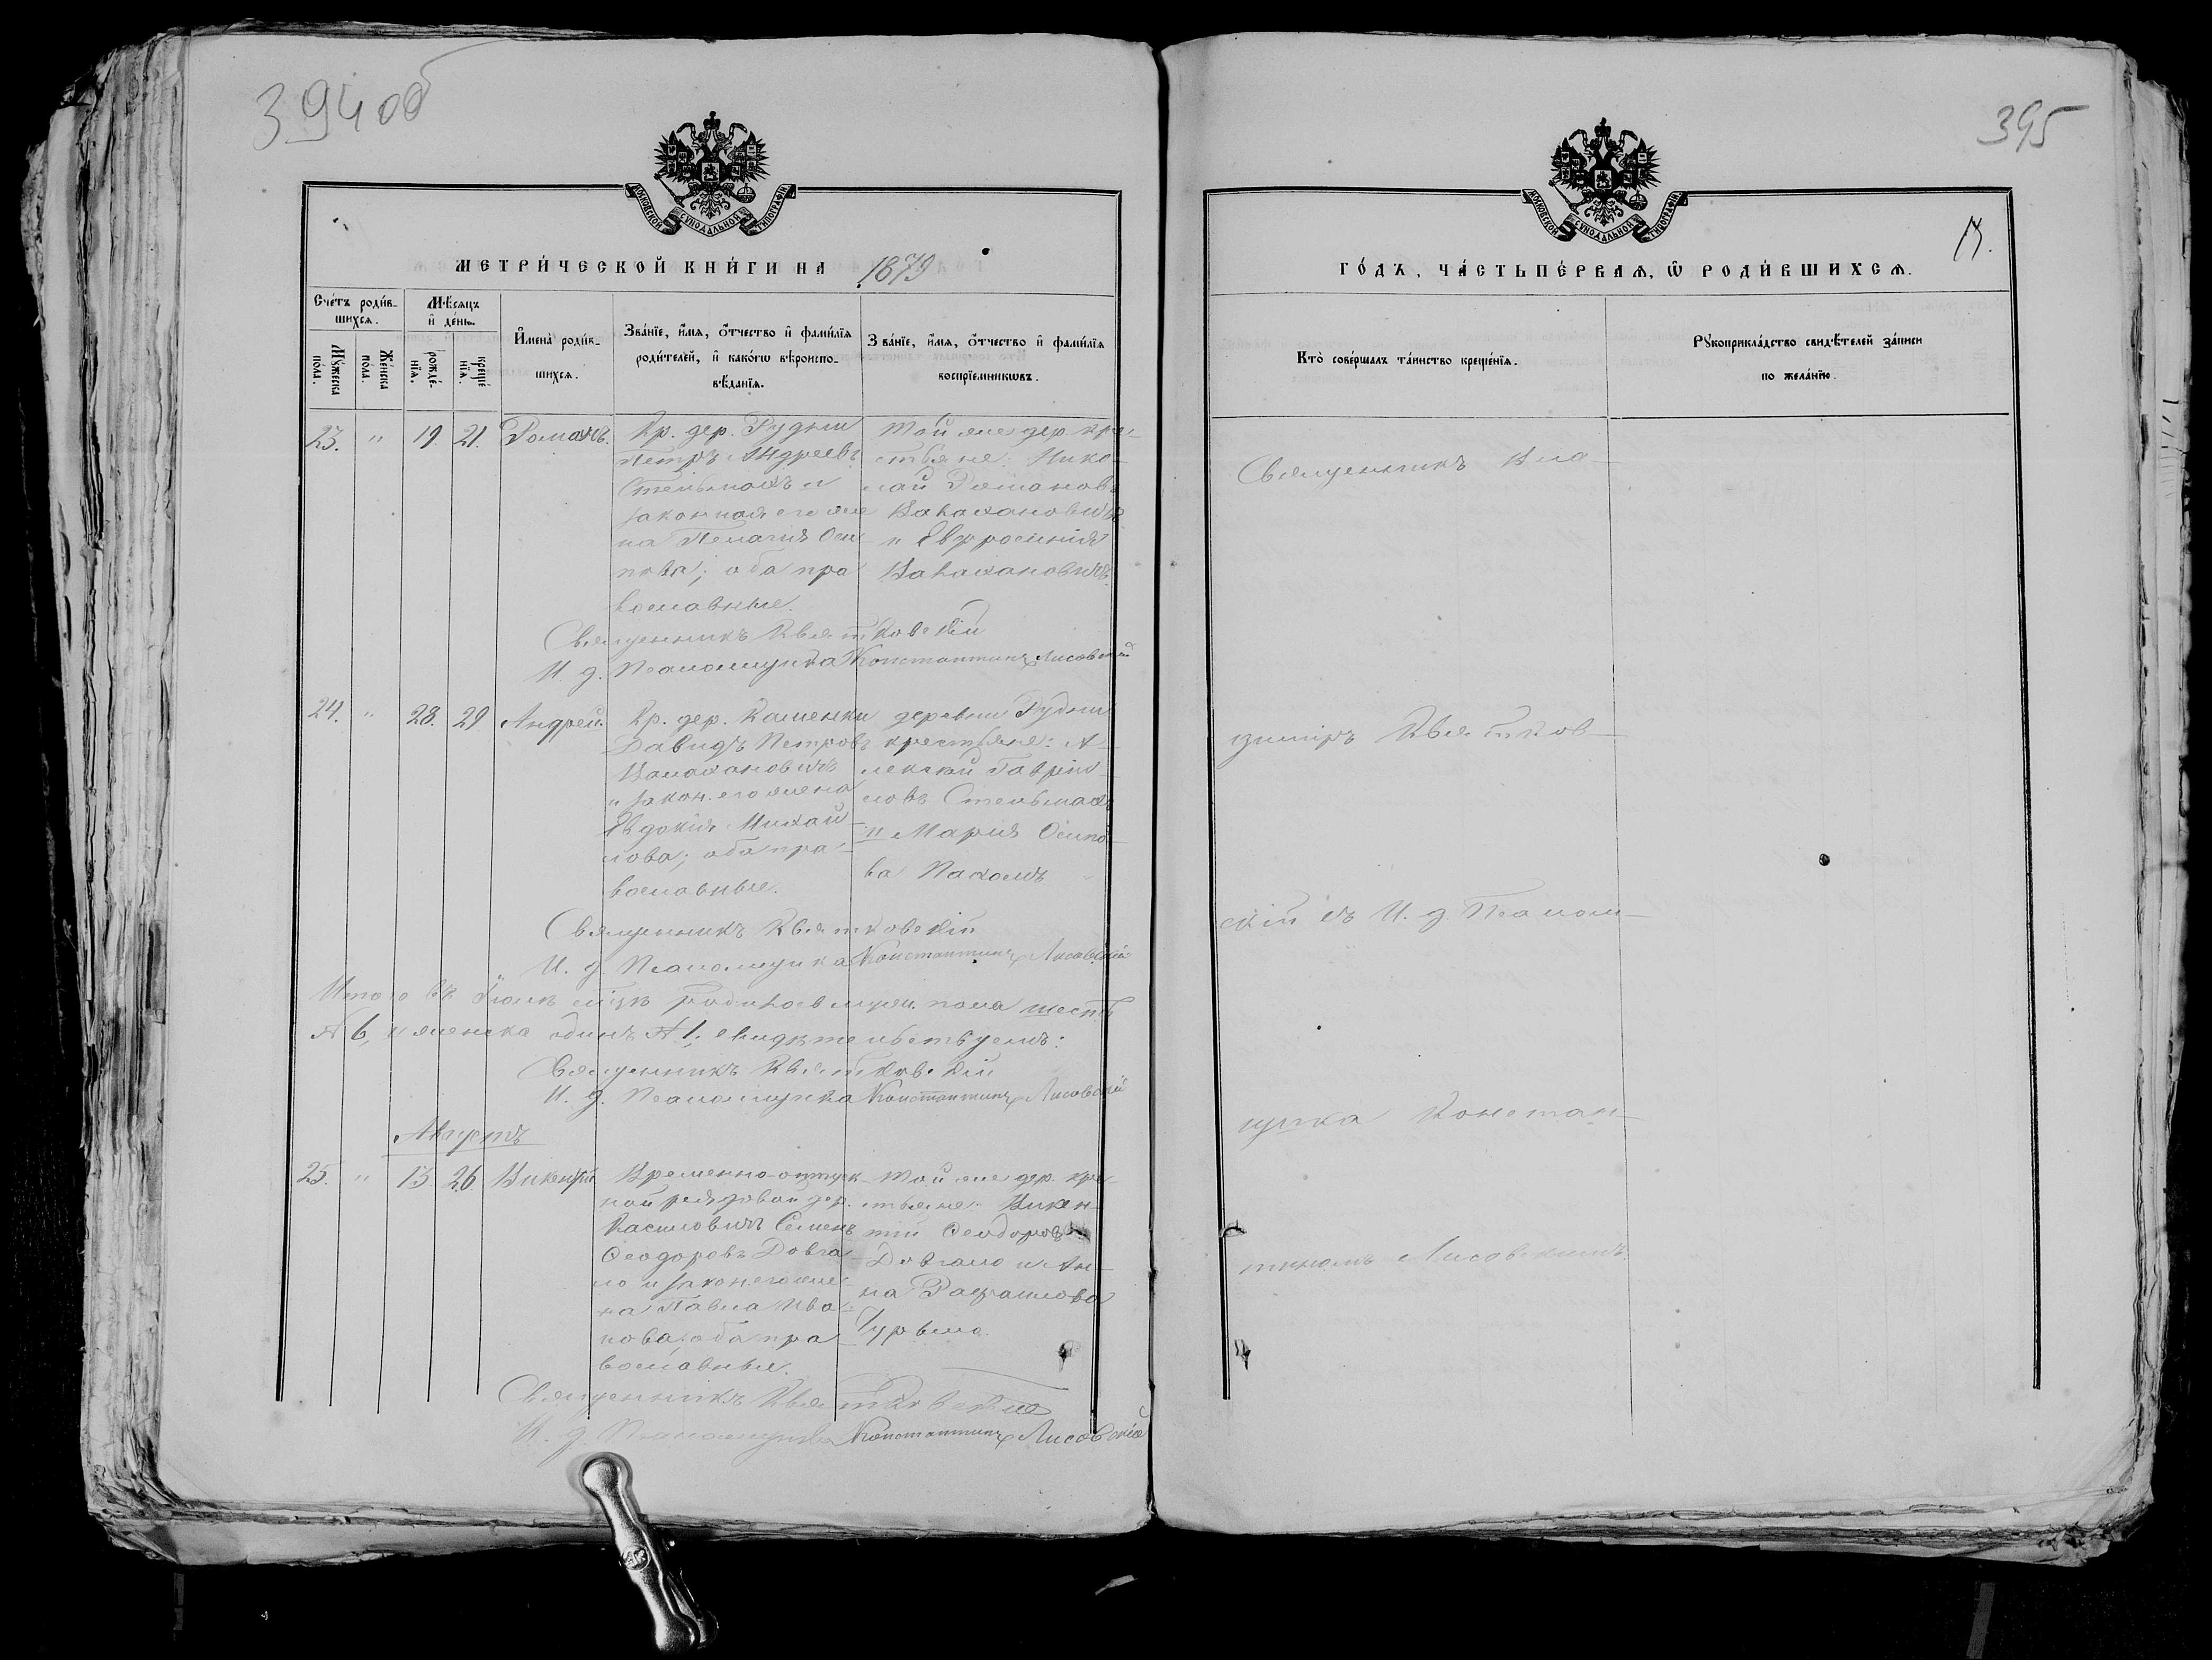 394 об
МОСКОВСКОЙ СѴНОДАЛЬНОЙ ТИПОГРАФІИ
МЕТРИ́ЧЕСКОЙ КНИ́ГИ НА 1879
Сче́тъ роди́в-
шихсѧ.
Мѣ́сѧцъ
и҆ де́нь.
Мꙋ́жеска по́ла.
Же́нска по́ла.
рожде́-
нїѧ.
креще́
нїѧ.
И҆мена̀ роди́в-
шихсѧ.
Зва́нїе, и҆́мѧ, ѻ҆́тчество и҆ фами́лїѧ
роди́телей, и҆ како́гѡ вѣроиспо-
вѣ́данїѧ.
Зва́нїе, и҆́мѧ, ѻ҆́тчество и҆ фами́лїѧ
воспрїе́мникѡвъ.
23. " 19. 21. Романъ.
Кр. дер. Рудни
Петръ Андреевъ
Стельмахъ и
законная его же
на Пелагія Оси
пова; оба пра
вославные.
Той же дер. кре-
стьяне: Нико-
лай Романовъ
и Евфросинія
Священникъ Квятковскій
И. д. Псаломщика Константинъ Лисовскій
24. " 28. 29 Андрей.
Кр. дер. Каменки
Давидъ Петровъ
и закон. его жена
Евдокія Михай-
лова; оба пра-
вославные.
деревни Рудни
крестьяне: А-
лексѣй Гаврїи-
ловъ Стельмахъ
и Марія Осипо-
ва Пахомъ
Священникъ Квятковскій
И. д. Псаломщика Константинъ Лисовскій
Итого въ Іюлѣ м-цѣ родилось муж. пола шесть
№ 6, и женска одинъ № 1; свидѣтельствуемъ:
Священникъ Квятковскій
И. д. Псаломщика Константинъ Лисовскій
Августъ
25. " 13. 26. Викентій
Временно-отпуск-
ной рядовой дер.
Семенъ
Ѳеодоровъ Довга-
ло и закон. его же-
на Павла Ива-
нова; оба пра-
вославные.
Той же дер. кре
стьяне: Викен-
тій Ѳеодоровъ
Довгало и Ан-
на Рафаилова
Гурьмо.
Священникъ Квятковскій
И. д. Псаломщика Константинъ Лисовскій
395
МОСКОВСКОЙ СѴНОДАЛЬНОЙ ТИПОГРАФІИ
ГО́ДЪ, ЧА́СТЬ ПЕ́РВАѦ, Ѡ҆ РОДИ́ВШИХСѦ.
Кто̀ соверша́лъ та́инство креще́нїѧ.
Рꙋкоприкла́дство свидѣ́телей за́писи
по жела́нїю.
Священникъ Вла-
димiръ Квятков-
скій съ И. д. Псалом-
щика Констан-
тиномъ Лисовскимъ.